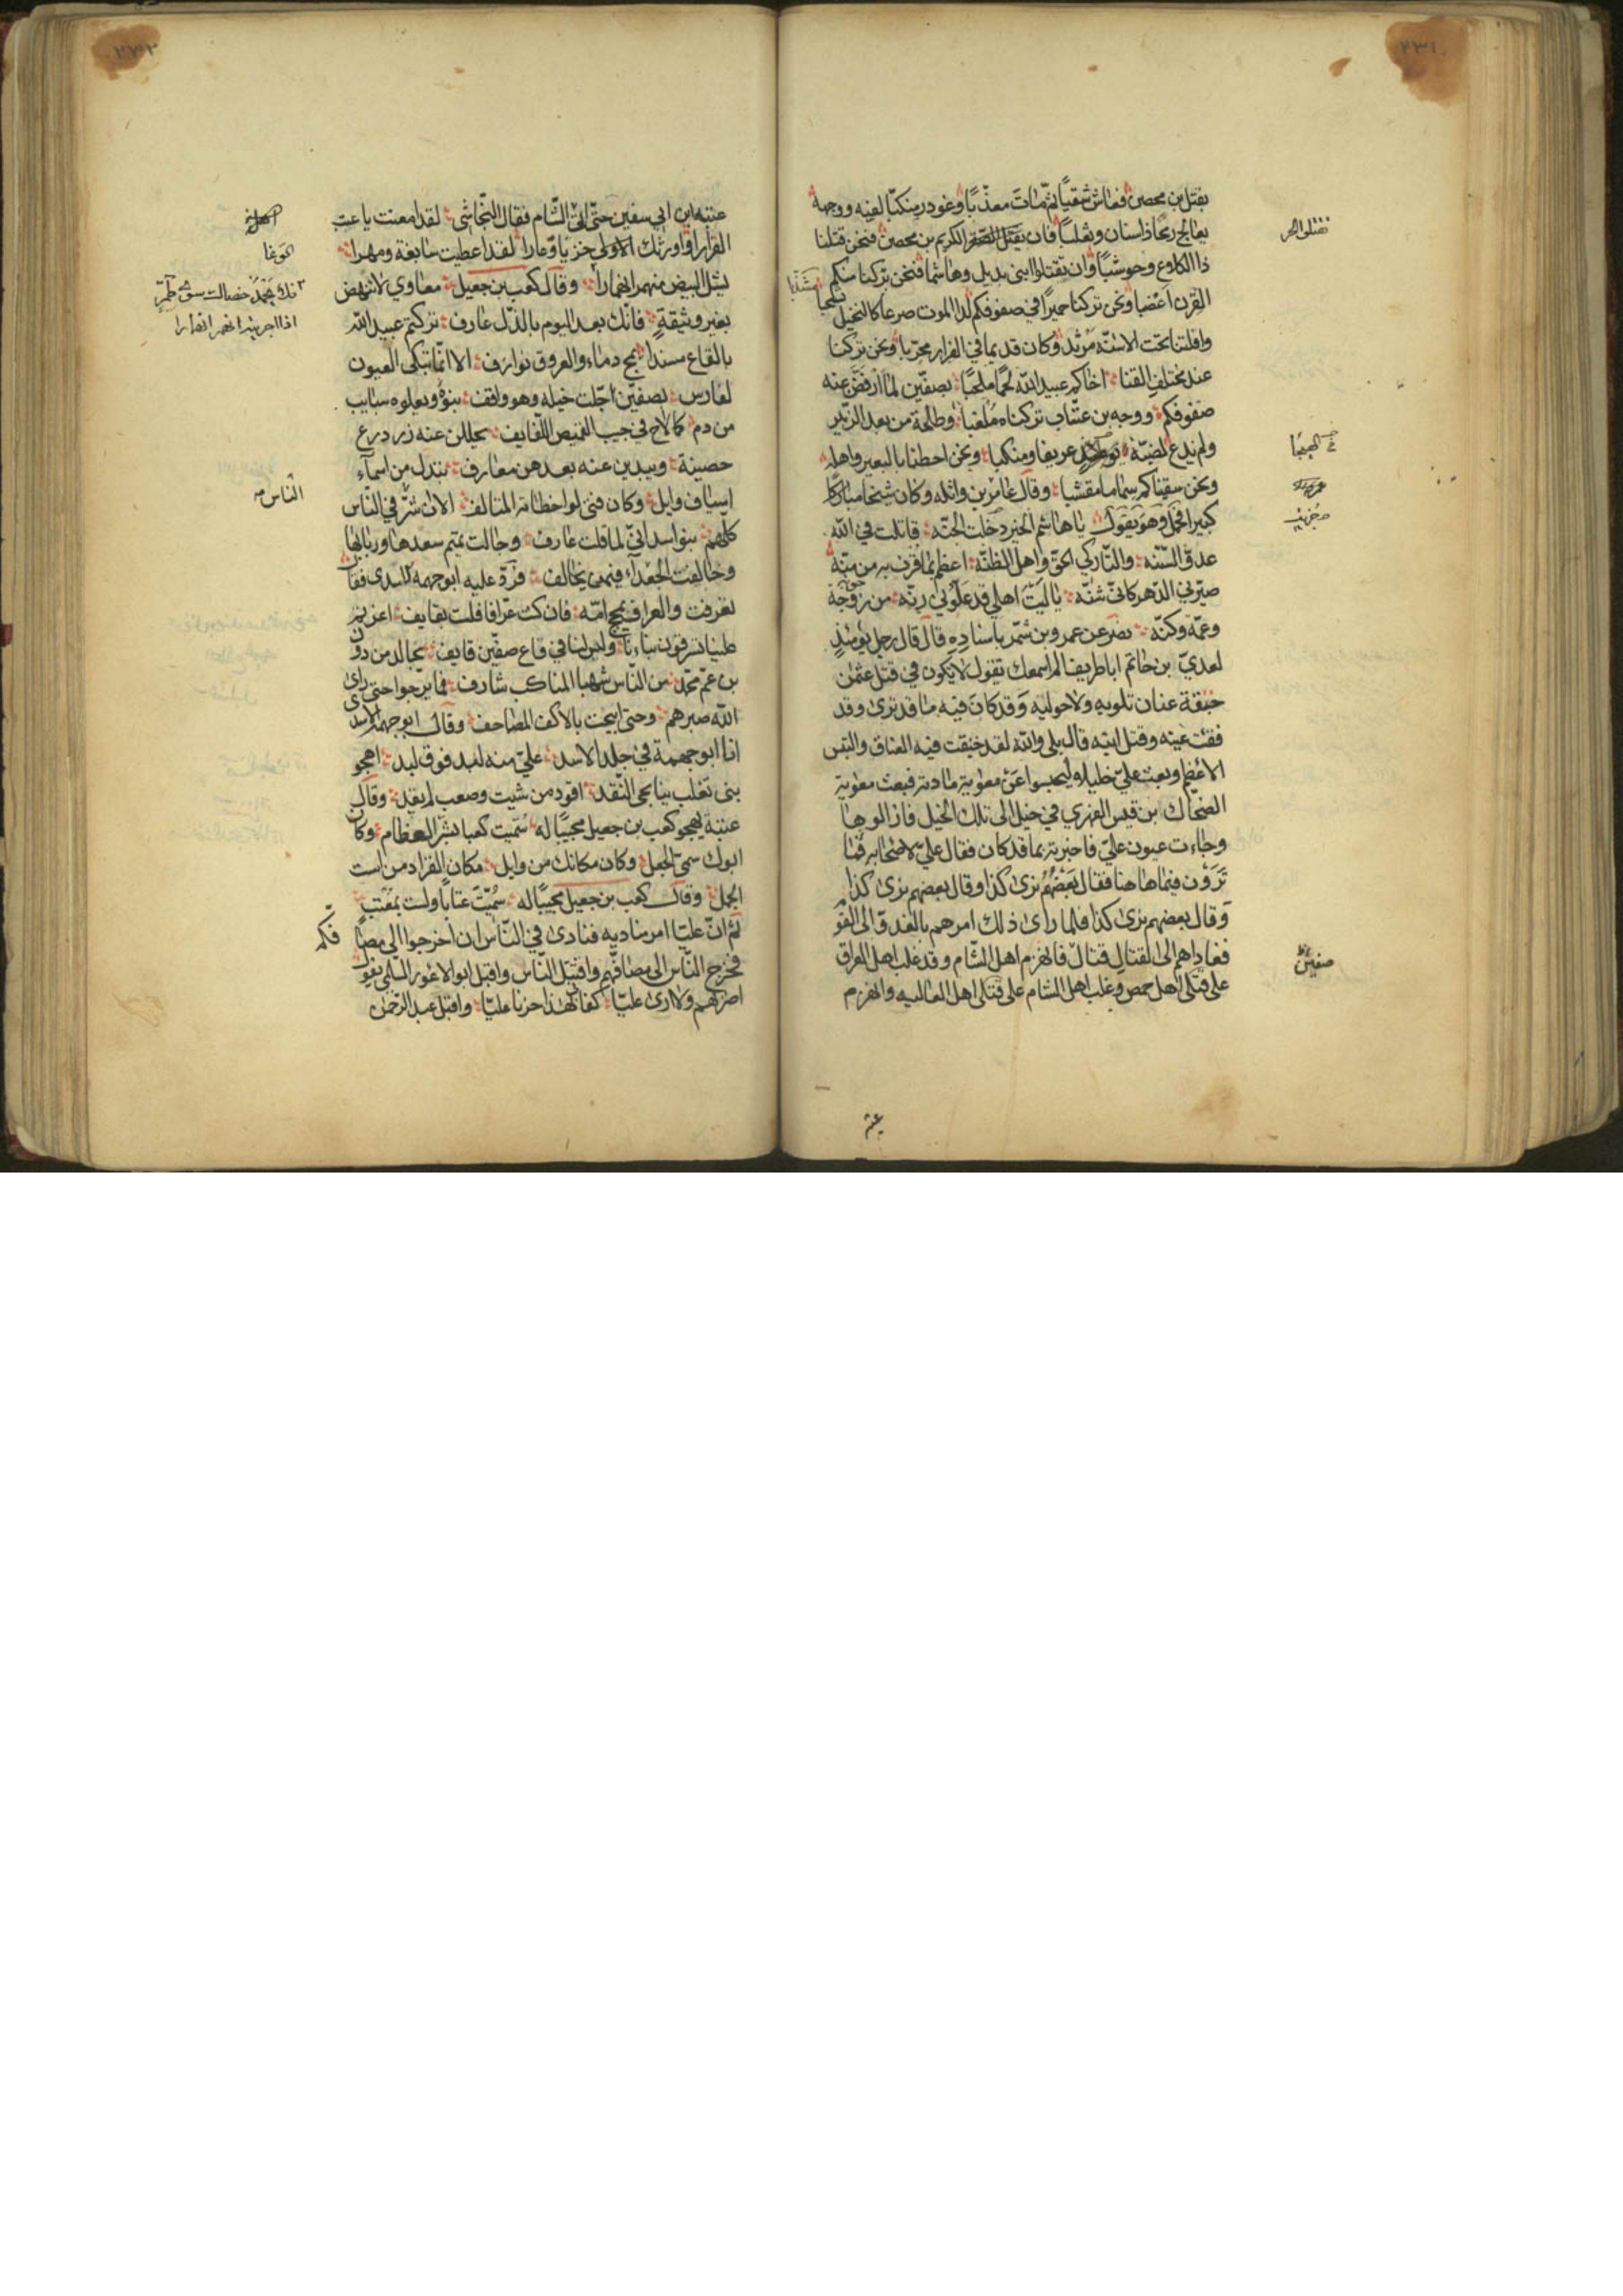 ٢٣١
بقتل بن محصن فعاش شقيا ثم مات معذبا وغودر منكبا لفيه ووجهه
يعالج رمحا ذا سنان وثعلبا فان يقتل الصقر الكريم بن محصن فنحن قتلنا
ذا الكلاع وحوشبا وان تقتلوا ابنى بديل وهاشما فنحن تركنا منكم
القرن اعضبا ونحن تركنا حميرا في صفوفكم لدا الموت صرعا كالنخيل
وافلتنا تحت الاسنة مرثد وكان قديما في الفرار مجربا ونحن تركنا
عند مختلف القنا اخاكم عبيد الله لحما ملحبا بصفين لما ارفض عنه
صفوفكم ووجه بن عتاب تركناه ملغبا وطلحة من بعد الزبير
ولم ندع لضبة عريفا ومنكبا ونحن احطنا بالبعير واهله
ونحن سقيناكم سماما مقشبا وقال عامر بن واثله وكان شيخا مباركا
كبيرا فحمل وهو يقول يا هاشم الخير دخلت الجنه قاتلت في الله
عدو السنه والتاركي الحق واهل الظنه اعظم بما فزت به من منه
صيرني الدهر كاني شنه يا ليت اهلي قد علوني رنه من زوجة
وعمة وكنه نصر عن عمرو بن شمر باسناده قال قال رجل يومئذ
لعدي بن حاتم ابا طريف الم اسمعك تقول لا يكون في قتل عثمن
خبقة عناق تلويه ولا حوليه وقد كان فيه ما قد ترى وقد
فقئت عينه وقتل ابنه قال بلى والله لقد خبقت فيه العناق والتيس
الاعظم وبعث علي خليلا ليحبسوا عن معوية مادته فبعث معوية
الضحاك بن قيس الفهري في خيل الى تلك الخيل فازالوها
وجاءت عيون علي فاخبرته بما قد كان فقال علي لاصحابه فما
ترون فيما هاهنا فقال بعضهم نرى كذا وقال بعضهم نرى كذا
وقال بعضهم نرى كذا فلما راى ذلك امرهم بالغدو الى القو
فغاداهم الى القتال قتال فانهزم اهل الشام وقد غلب اهل العراق
على قتلى اهل حمص وغلب اهل الشام على قتلى اهل العاليه وانهزم
صفين
٢٣٢
عتبه ابن ابي سفين حتى اتى الشام فقال النجاشى لقد امعنت يا عتب
الفرارا واورثك الاولى خزيا وعارا لقد اعطيت سابغة ومهرا
وقال كعب بن جعيل معاوي لا تنهض
بغير وثيقة فانك بعد اليوم بالذل عارف تركتم عبيد الله
بالقاع مسندا يمج دماء والعروق نوازف الا انما تبكى العيون
لفارس بصفين اجلت خيله وهو واقف ينوء ويعلوه سبايب
من دم كما لاح في جيب القميص اللفايف يحللن عنه زر درع
حصينة ويبدين عنه بعدهن معارف تبدل من اسماء
اسياف وايل وكان فتى لو اخطاته المتالف الا ان شر في الناس
كلهم بنو اسد اني لما قلت عارف وجالت تميم سعدها وربابها
وخالفت الجعداء فيمن يخالف فرد عليه ابو جهمه الاسدى فقال
تعرفت والعراف يمج امه فان كنت عرافا فلست بقايف اعزيتم
علينا تسرقون بناتنا وليس لنا في قاع صفين قايف نجالد من دون
بن عم محمد من الناس شهبا المناكب شارف فما برحوا حتى راى
الله صبرهم وحتى اتيحت بالاكف المصاحف وقال ابو جهمة الاسدى
انا ابو جهمة في جلد الاسد علي منه لبد فوق لبد اهجو
بنى تغلب ينابجى النقد اقود من شيت وصعب لم يقد وقال
عتبة يهجو كعب بن جعيل مجيبا له سميت كعبا بشر العظام وكان
ابوك سمي الجعل وكان مكانك من وايل مكان القراد من است
الجمل وقال كعب بن جعيل مجيبا له سميت عتابا ولست بمعتب
ثم ان عليا امر مناديه فنادى في الناس ان اخرجوا الى مصا
فكم
فخرج الناس الى مصافهم واقتتل الناس واقبل ابو الاعور السلمي يقول
اضربهم ولا ارى عليا كفا بهذا حزنا عليا واقبل عبد الرحمن
الناس